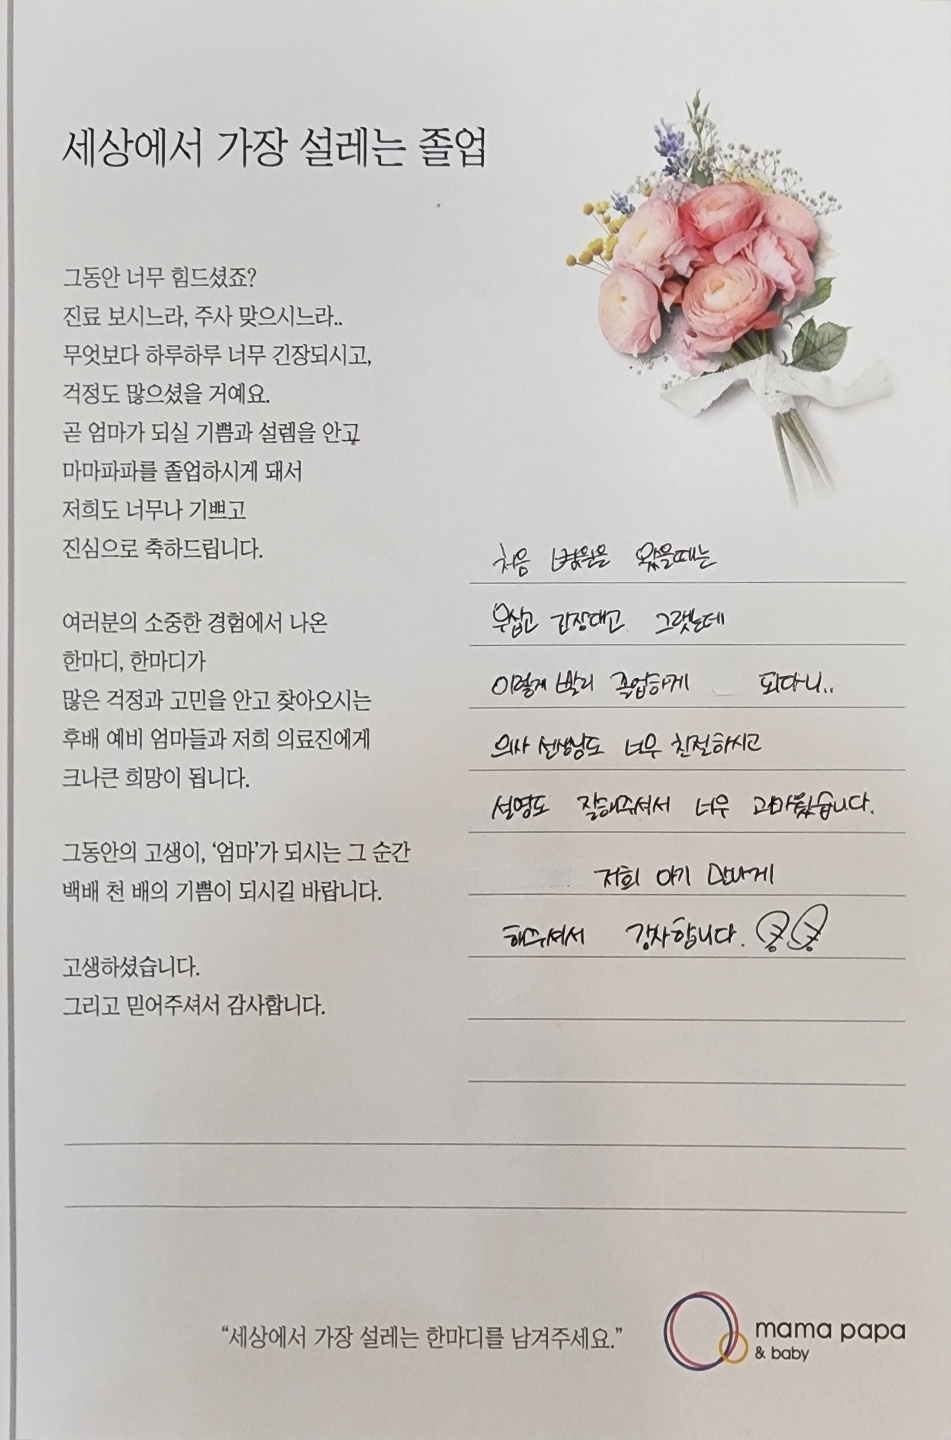 세상에서 가장 설레는 졸업
그동안 너무 힘드셨죠?
진료 보시느라, 주사 맞으시느라..
무엇보다 하루하루 너무 긴장되시고,
걱정도 많으셨을 거예요.
곧 엄마가 되실 기쁨과 설렘을 안고
마마파파를 졸업하시게 돼서
저희도 너무나 기쁘고
진심으로 축하드립니다.
여러분의 소중한 경험에서 나온
한마디, 한마디가
많은 걱정과 고민을 안고 찾아오시는
후배 예비 엄마들과 저희 의료진에게
크나큰 희망이 됩니다.
그동안의 고생이, ‘엄마’가 되시는 그 순간
백배 천 배의 기쁨이 되시길 바랍니다.
고생하셨습니다.
그리고 믿어주셔서 감사합니다.
처음 병원을 왔을때는
무섭고 긴장대고 그랬는데
이렇게 빨리 졸업하게 되다니..
의사 선생님도 너무 친절하시고
설명도 잘해주셔서 너무 고마웠습니다.
저희 아기 만나게
해주셔서 감사합니다.
“세상에서 가장 설레는 한마디를 남겨주세요.”
mama papa
& baby